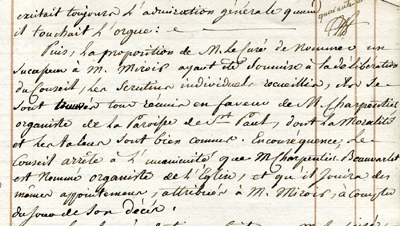 excitait toujours l'admiration générale quand
il touchait l'orgue: =
Puis, la proposition de M. le Curé de nommer un
successeur à M. Miroir ayant été soumise à la délibération
du Conseil, les scrutins individuels recueillis, ils se
sont trouvés tous réunis en faveur de M. Charpentier
organiste de la Paroisse de St Paul, dont la moralité
et les talens sont bien connus. En conséquence, le
Conseil arrête à l'unanimité que M. Charpentier Beauvarlet
est nommé organiste de l'Eglise, et qu'il jouira des
mêmes appointemens, attribués à M. Miroir, à compter
du jour de son décès.